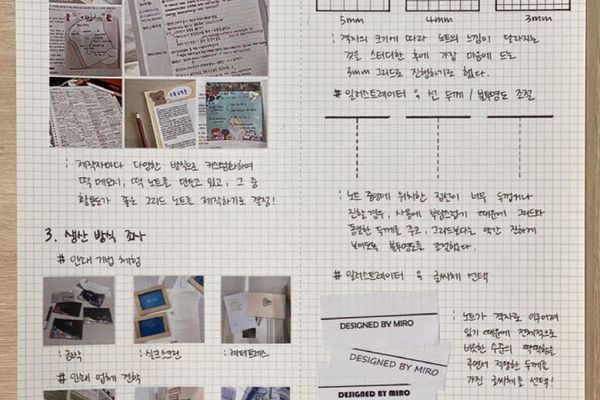 : 제작자마다 다양한 방식으로 커스텀화하여
떡 메모지, 떡 노트를 만들고 있고, 그 중
활용도가 좋은 그리드 노트를 제작하기로 결정!
3. 생산 방식 조사
# 인쇄 기법 체험
: 금박
: 실크스크린
: 레터프레스
# 인쇄 업체 견학
5mm
4mm
3mm
: 격자의 크기에 따라 노트의 느낌이 달라지는
것을 스터디한 후에 가장 마음에 드는
3mm 그리드로 진행하기로 했다.
# 일러스트레이터 속 선 두께 / 불투명도 조절
: 노트 중앙에 위치한 점선이 너무 두껍거나
진할 경우, 사용에 부담스럽기 때문에 그리드와
동일한 두께를 주고, 그리드보다는 약간 진하게
보이도록 불투명도를 조절했다.
# 일러스트레이터 속 글씨체 선택
DESIGNED BY MIRO
DESIGNED BY MIRO
DESIGNED BY MIRO
: 노트가 격자로 이루어져
있기 때문에 전체적으로
비슷한 수준의 딱딱함을
주면서 적당한 두께를
가진 글씨체를 선택!